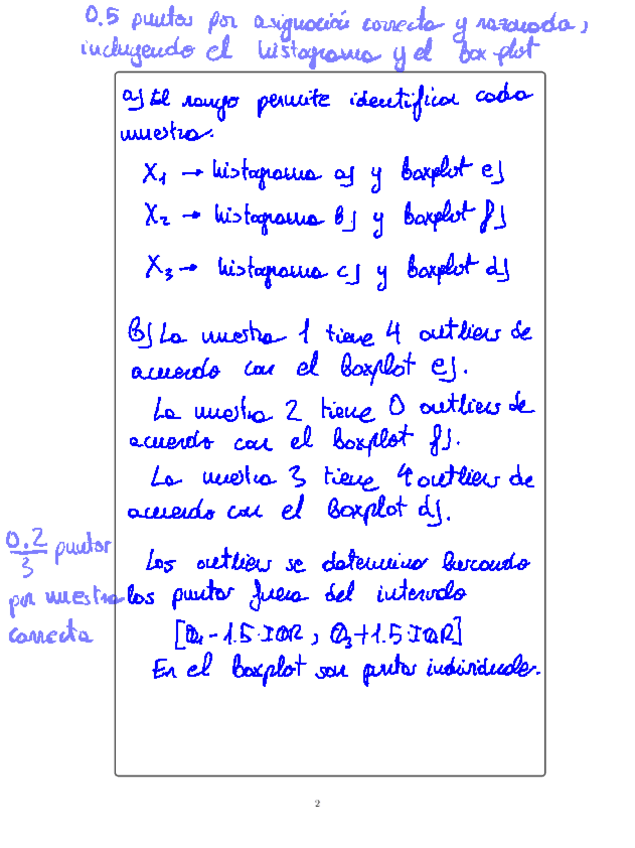 0.5 puntos por asignación correcta y razonada,
incluyendo el histograma y el box plot
a) El rango permite identificar cada
muestra.
X₁ → histograma a) y boxplot e)
X₂ → histograma b) y boxplot f)
X₃ → histograma c) y boxplot d)
b) La muestra 1 tiene 4 outliers de
acuerdo con el boxplot e).
La muestra 2 tiene 0 outliers de
acuerdo con el boxplot f).
La muestra 3 tiene 4 outliers de
acuerdo con el boxplot d).
0.2/3 puntos
por muestra
correcta
Los outliers se determina buscando
los puntos fuera del intervalo
[Q₁ - 1.5·IQR, Q₃ + 1.5·IQR]
En el boxplot son puntos individuale.
2